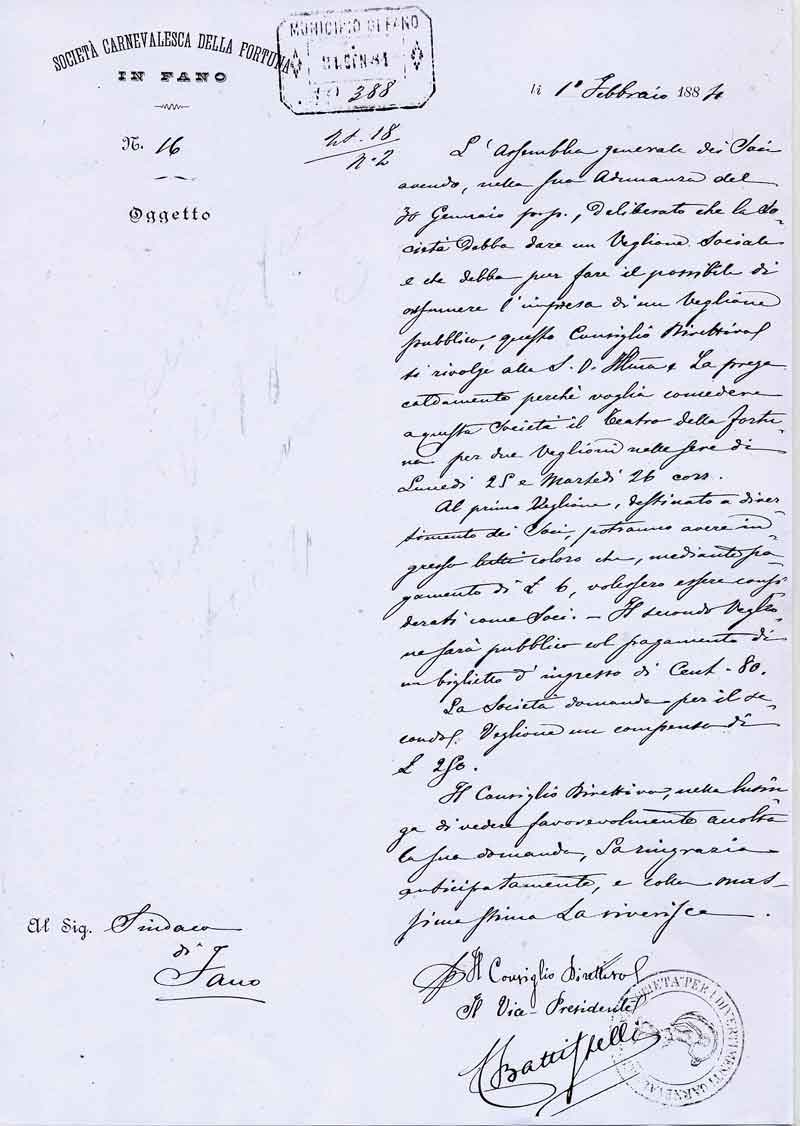 SOCIETÀ CARNEVALESCA DELLA FORTUNA
IN FANO
MUNICIPIO DI FANO
GEN 84
388
N. 16
Oggetto
18
N° 2
li 1° Febbraio 1884
L'Assemblea generale dei Soci
avendo, nella sua Adunanza del
30 Gennaio p.p., deliberato che la So-
cietà debba dare un Veglione Sociale
e che debba pur fare il possibile di
assumere l'impresa di un Veglione
pubblico, questo Consiglio Direttivo
si rivolge alla S. V. Illma e La prega
caldamente perchè voglia concedere
a questa Società il Teatro della Fortu-
na per due Veglioni nelle sere di
Lunedì 25 e Martedì 26 corr.
Al primo Veglione, destinato a diver-
timento dei Soci, potranno avere in-
gresso tutti coloro che, mediante pa-
gamento di £ 6, volessero essere consi-
derati come Soci. - Il secondo Veglio-
ne sarà pubblico col pagamento di
un biglietto d'ingresso di Cent. 80.
La Società domanda per il se-
condo Veglione un compenso di
£ 250.
Il Consiglio Direttivo, nella lusin-
ga di vedere favorevolmente accolta
la sua domanda, La ringrazia
anticipatamente, e colla mas-
sima stima La riverisce.
Al Sig. Sindaco
di
Fano
Il Consiglio Direttivo
Il Vice-Presidente
Battistelli
SOCIETÀ PER I DIVERTIMENTI CARNEVAL